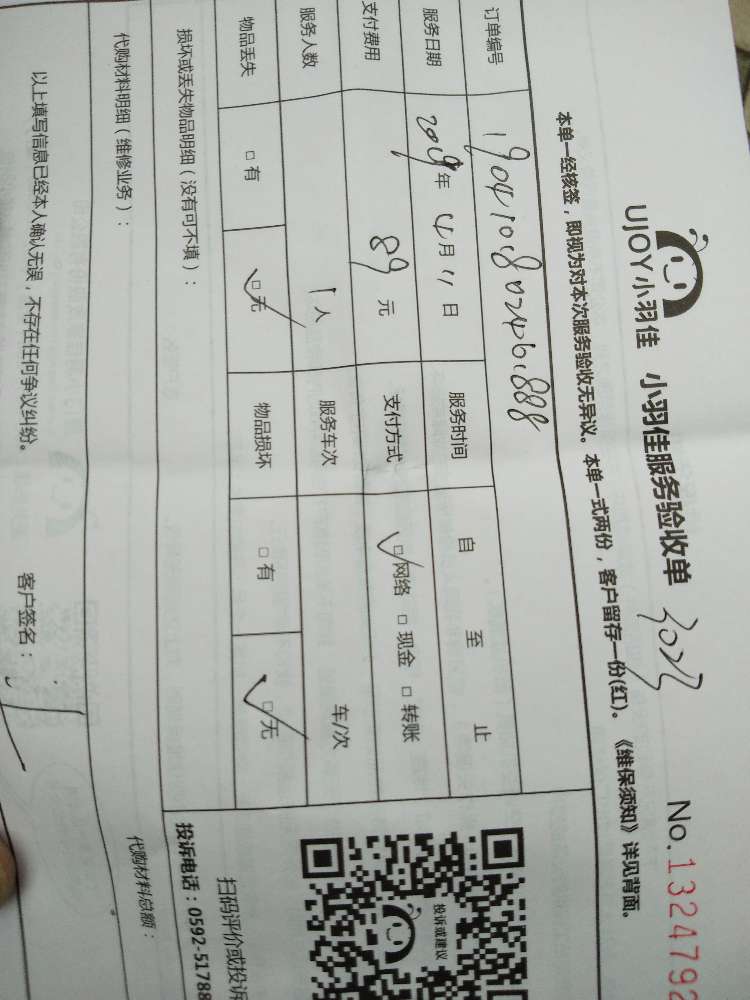 UJOY小羽佳 小羽佳服务验收单 No.1324792
本单一经核签，即视为对本次服务验收无异议。本单一式两份，客户留存一份(红)。《维保须知》详见背面。
订单编号
服务日期 2019年4月11日 服务时间 自 至 止
支付费用 89元 支付方式 ☑网络 □现金 □转账
服务人数 1人 服务车次 车/次
物品丢失 □有 ☑无 物品损坏 □有 ☑无
损坏或丢失物品明细（没有可不填）：
代购材料明细（维修业务）： 代购材料总额：
以上填写信息已经本人确认无误，不存在任何争议纠纷。 客户签名：
投诉或建议
扫码评价或投诉
投诉电话：0592-51788